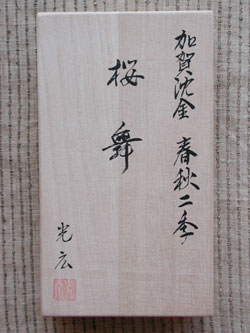 加賀沈金 春秋二季
桜舞
光広